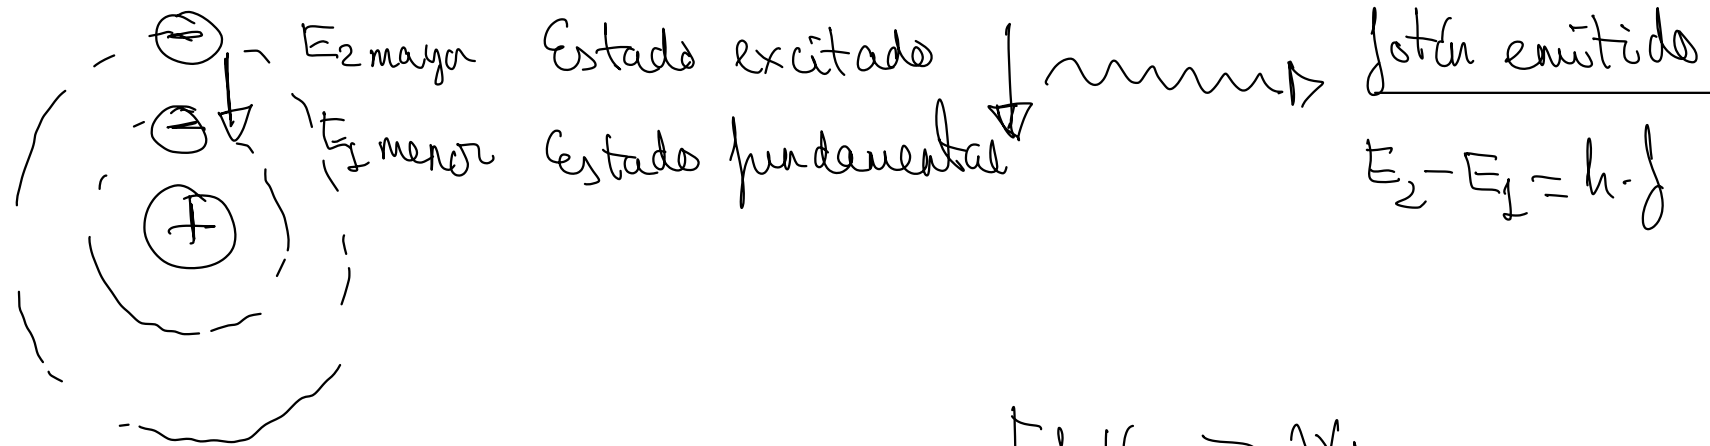 ⊖ E₂ mayor Estado excitado fotón emitido
⊖ E₁ menor Estado fundamental E₂ - E₁ = h·f
+